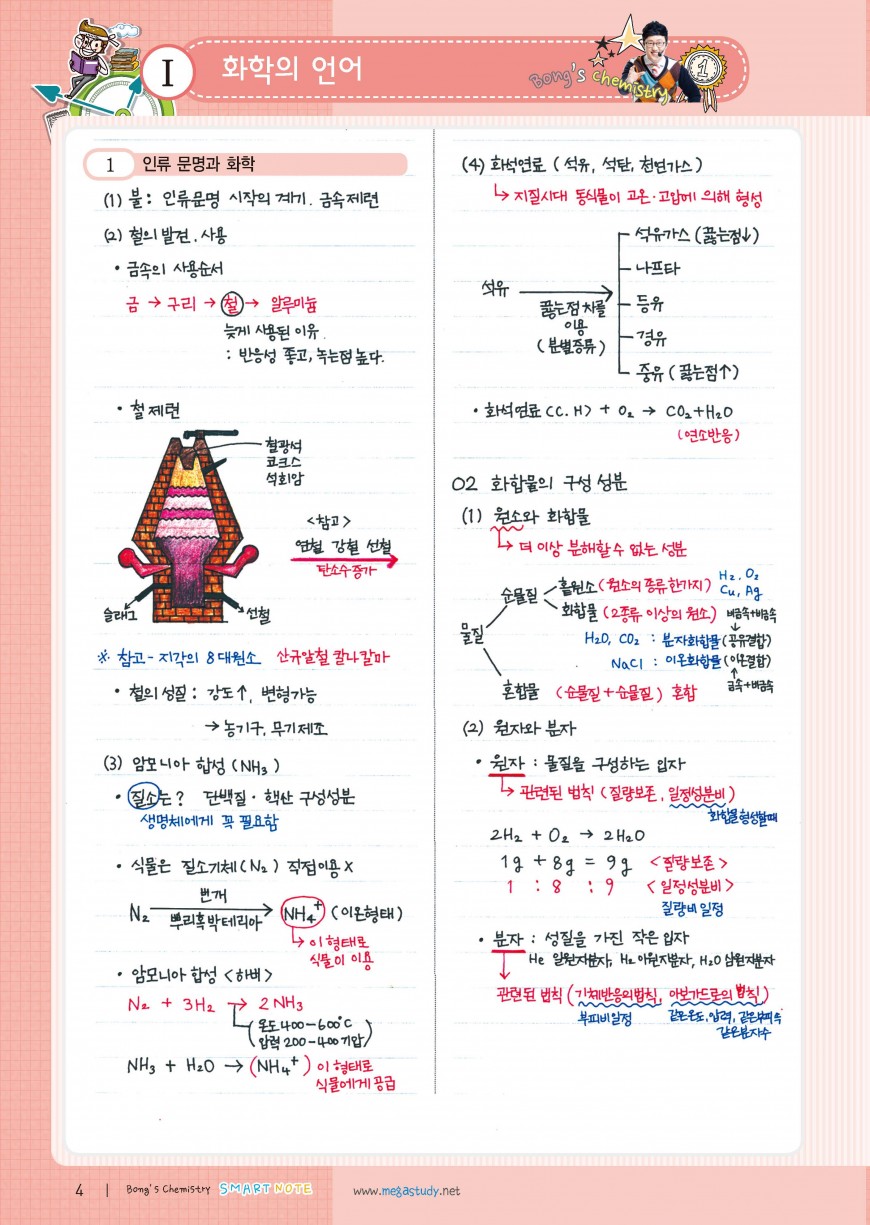 I
화학의 언어
Bong's chemistry
1
1 인류 문명과 화학
(1) 불 : 인류문명 시작의 계기. 금속제련
(2) 철의 발견. 사용
• 금속의 사용순서
금 → 구리 → 철 → 알루미늄
늦게 사용된 이유.
: 반응성 좋고, 녹는점 높다.
• 철 제련
철광석
코크스
석회암
<참고>
연철 강철 선철
탄소수 증가
슬래그
선철
※ 참고 - 지각의 8대원소 산규알철 칼나칼마
• 철의 성질 : 강도↑, 변형가능
→ 농기구, 무기제조
(3) 암모니아 합성 (NH₃)
• 질소는? 단백질 · 핵산 구성성분
생명체에게 꼭 필요함
• 식물은 질소기체 (N₂) 직접이용 X
번개
N₂ → NH₄⁺ (이온형태)
뿌리혹박테리아
↳ 이 형태로
식물이 이용
• 암모니아 합성 <하버>
N₂ + 3H₂ → 2NH₃
(온도 400-600°C
압력 200-400기압)
NH₃ + H₂O → (NH₄⁺) 이 형태로
식물에게 공급
(4) 화석연료 (석유, 석탄, 천연가스)
↳ 지질시대 동식물이 고온·고압에 의해 형성
석유가스 (끓는점↓)
나프타
석유
등유
끓는점 차를
이용
(분별증류)
경유
중유 (끓는점↑)
• 화석연료 (C. H) + O₂ → CO₂+H₂O
(연소반응)
02 화합물의 구성 성분
(1) 원소와 화합물
↳ 더 이상 분해할 수 없는 성분
물질
순물질
홑원소 (원소의 종류 한가지) H₂, O₂
Cu, Ag
화합물 (2종류 이상의 원소) 비금속+비금속
H₂O, CO₂ : 분자화합물 (공유결합)
NaCl : 이온화합물 (이온결합)
금속+비금속
혼합물 (순물질+순물질) 혼합
(2) 원자와 분자
• 원자 : 물질을 구성하는 입자
↳ 관련된 법칙 (질량보존, 일정성분비)
화합물 형성할때
2H₂ + O₂ → 2H₂O
1g + 8g = 9g <질량보존>
1 : 8 : 9 <일정성분비>
질량비 일정
• 분자 : 성질을 가진 작은 입자
He 일원자분자, H₂ 이원자분자, H₂O 삼원자분자
관련된 법칙 (기체반응의법칙, 아보가드로의 법칙)
부피비일정 같은온도, 압력, 같은부피 속
같은분자수
4 | Bong's Chemi5try SMART NOTE www.megastudy.net